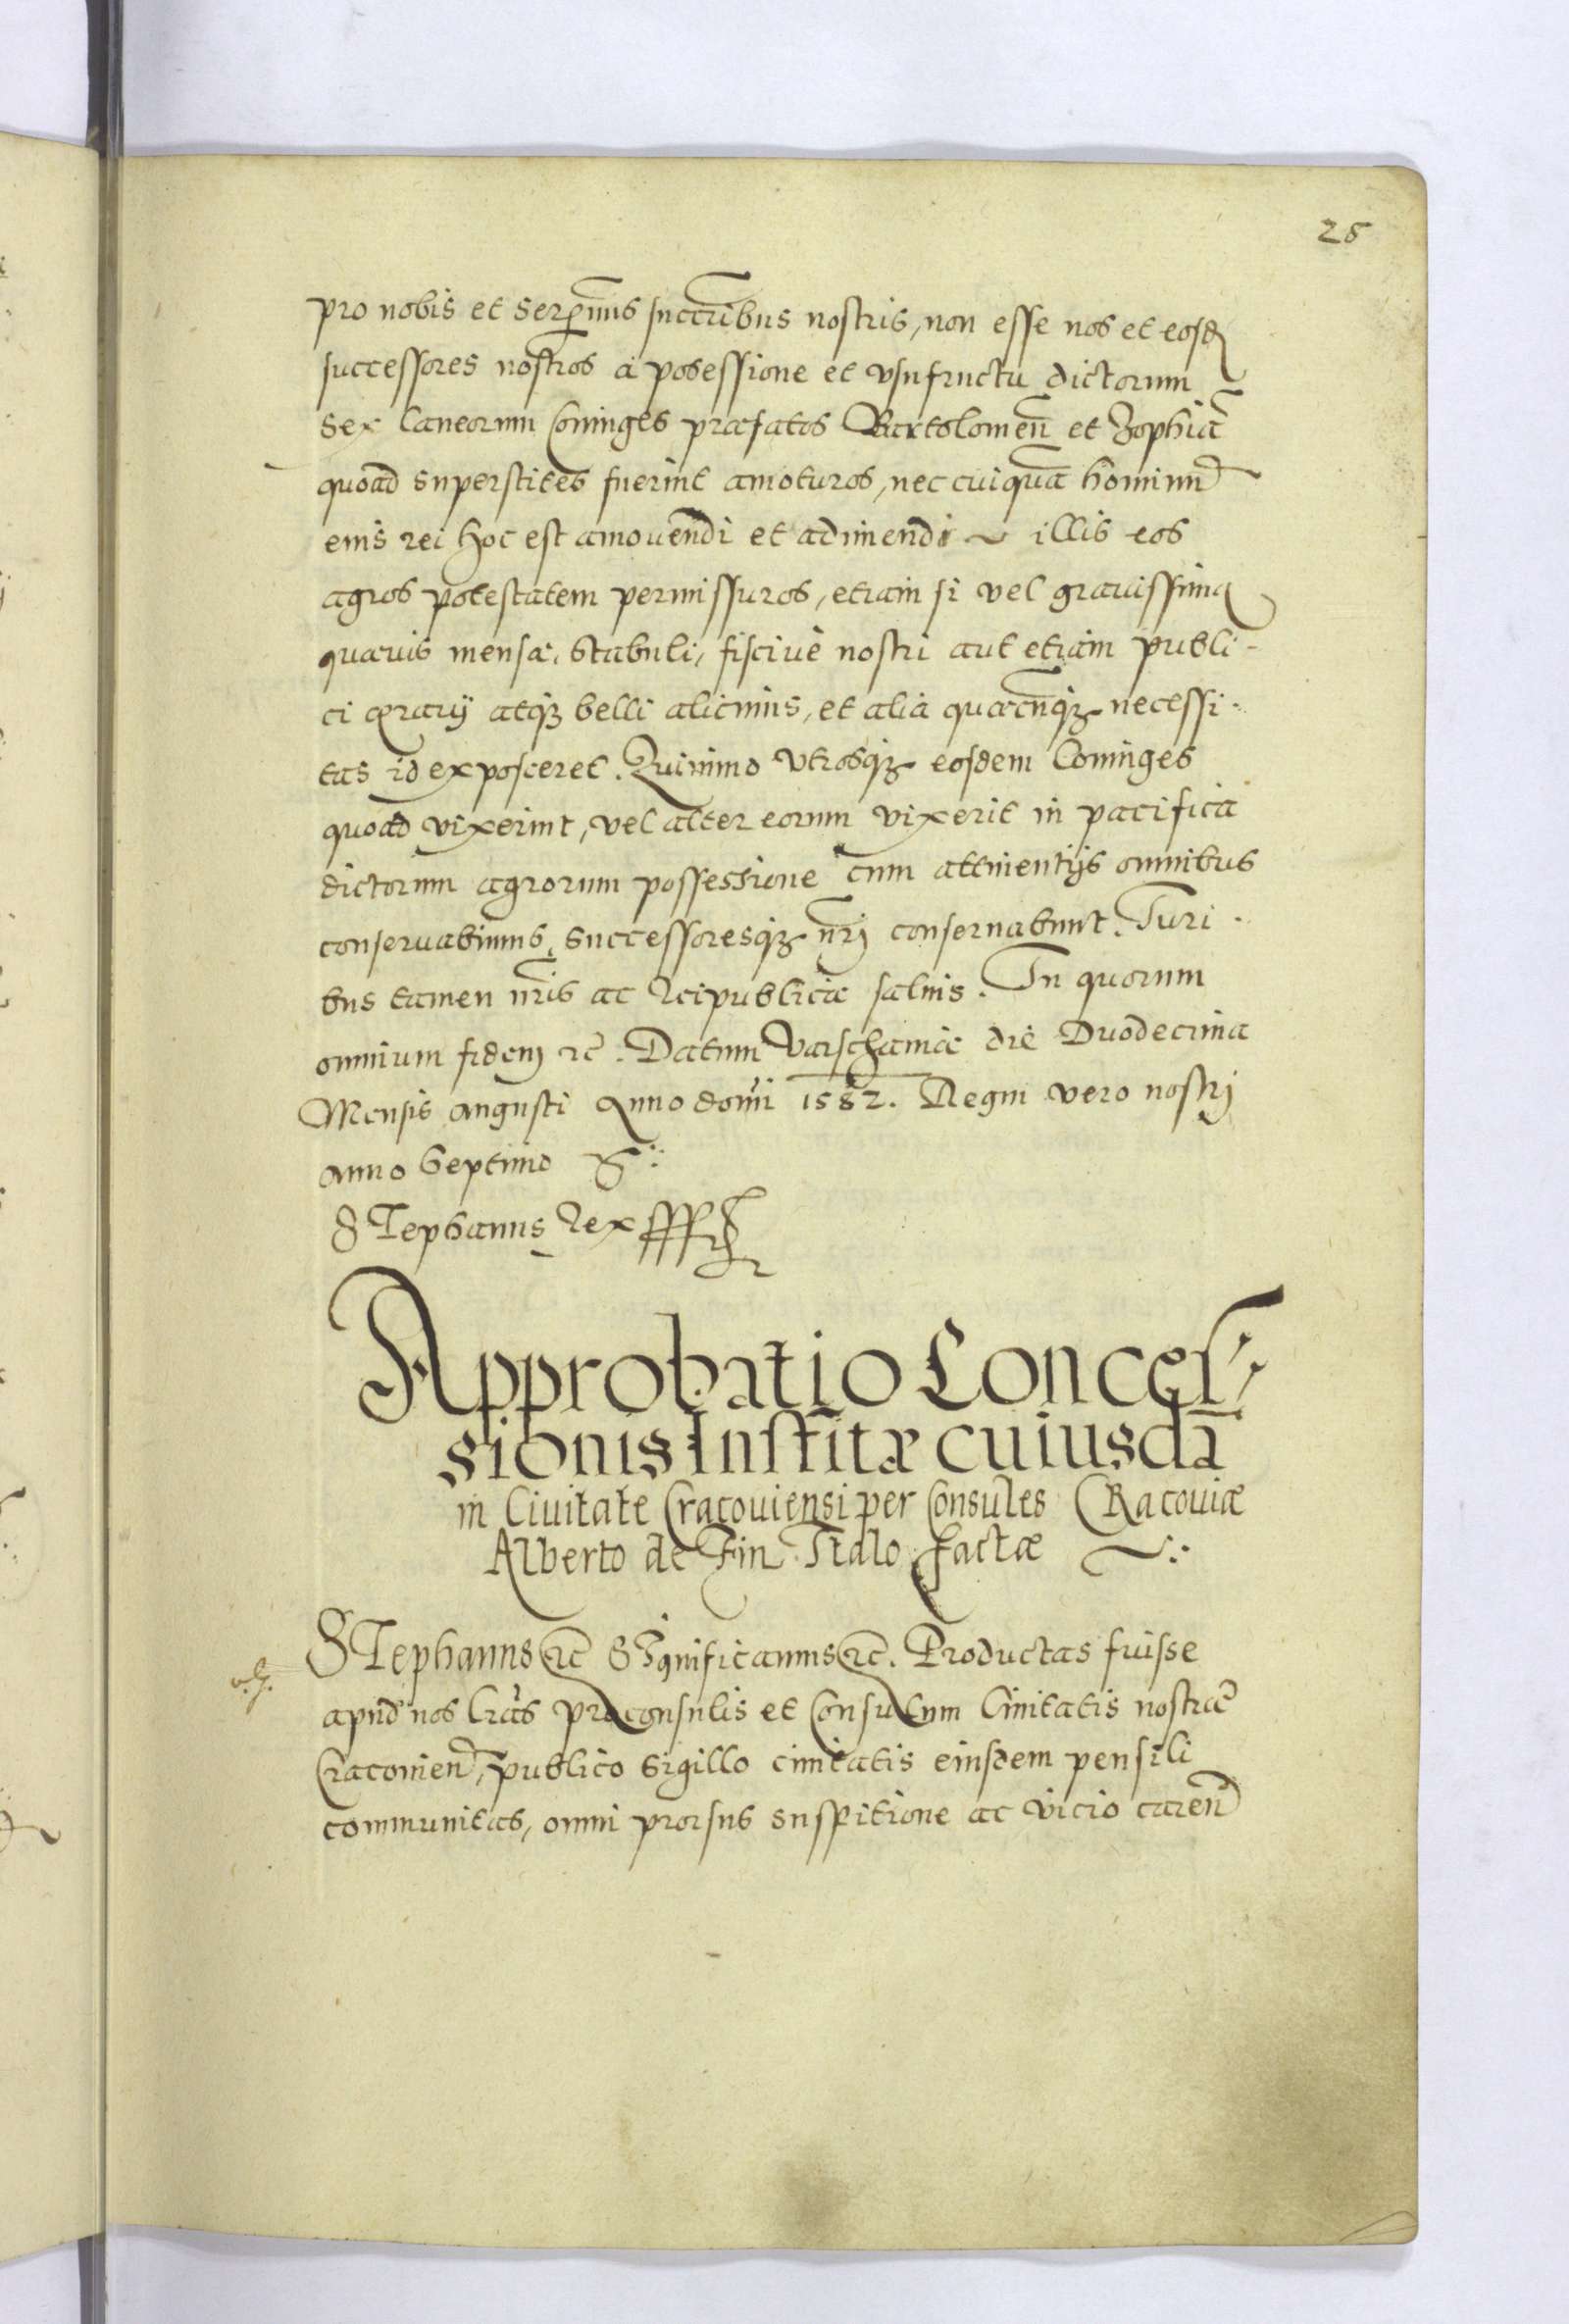 28
pro nobis et Serenmis succribus nostris, non esse nos et eosd
successores nostros a posessione et vsufructu dictorum
Sex laneorum Coniuges præfatos Bartolomeū et Zophiā
quoad superstites fuerint amoturos, nec cuiquā hominū
eius rei hoc est amouendi et adimendi ~ illis eos
agros potestatem permissuros, etiam si vel grauissima
quæuis mensæ, stabuli, fisciue nostri aut etiam publi-
ci ærarij atqȝ belli alicuius, et alia quæcūqȝ necessi-
tas id exposceret. Quinimo vtrosqȝ eosdem Coniuges
quoad vixerint, vel alter eorum vixerit in pacifica
dictorum agrorum possessione cum attinentijs omnibus
conseruabimus, successoresqȝ nrj conseruabunt. Juri-
bus tamen nris ac Reipublicæ saluis. In quorum
omnium fidem etc. Datum Varschauiæ die Duodecima
Mensis Augusti Anno domi 1582. Regni vero nostrj
anno Septimo
Stephanus Rex
Approbatio Conces-
sionis Institæ cuiusdā
in Ciuitate Cracouiensi per Consules CRacouiæ
Alberto de Fin Italo factæ
STephanus etc Significamus etc. Productas fuisse
apud nos lrās proconsulis et Consulum Ciuitatis nostræ
Cracouien, publico sigillo ciuitatis eiusdem pensili
communitas, omni prorsus suspitione ac vicio caren